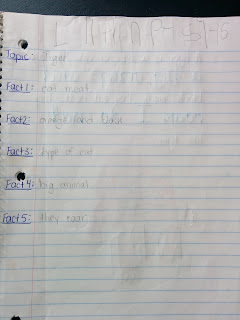 Topic: tiger
Fact 1: eat meat
Fact 2: orange and black
Fact 3: type of cat
Fact 4: big animal
Fact 5: they roar